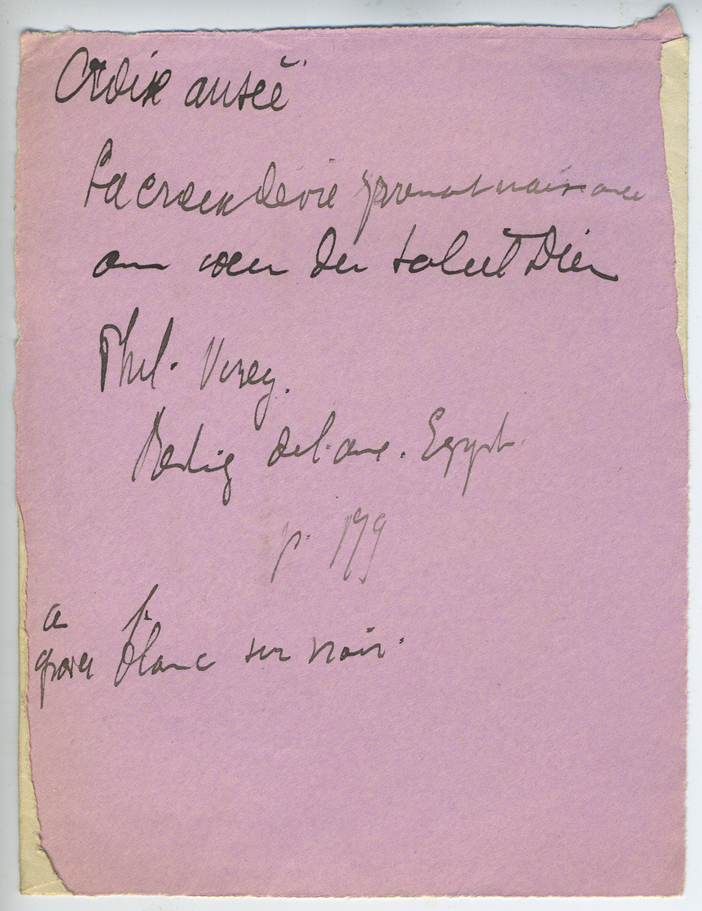 Croix ansée
La croix de vie prenant naissance
au coeur du soleil Dieu
Phil. Virey.
Relig de l'anc. Egypt.
p. 179
à
graver blanc sur noir.